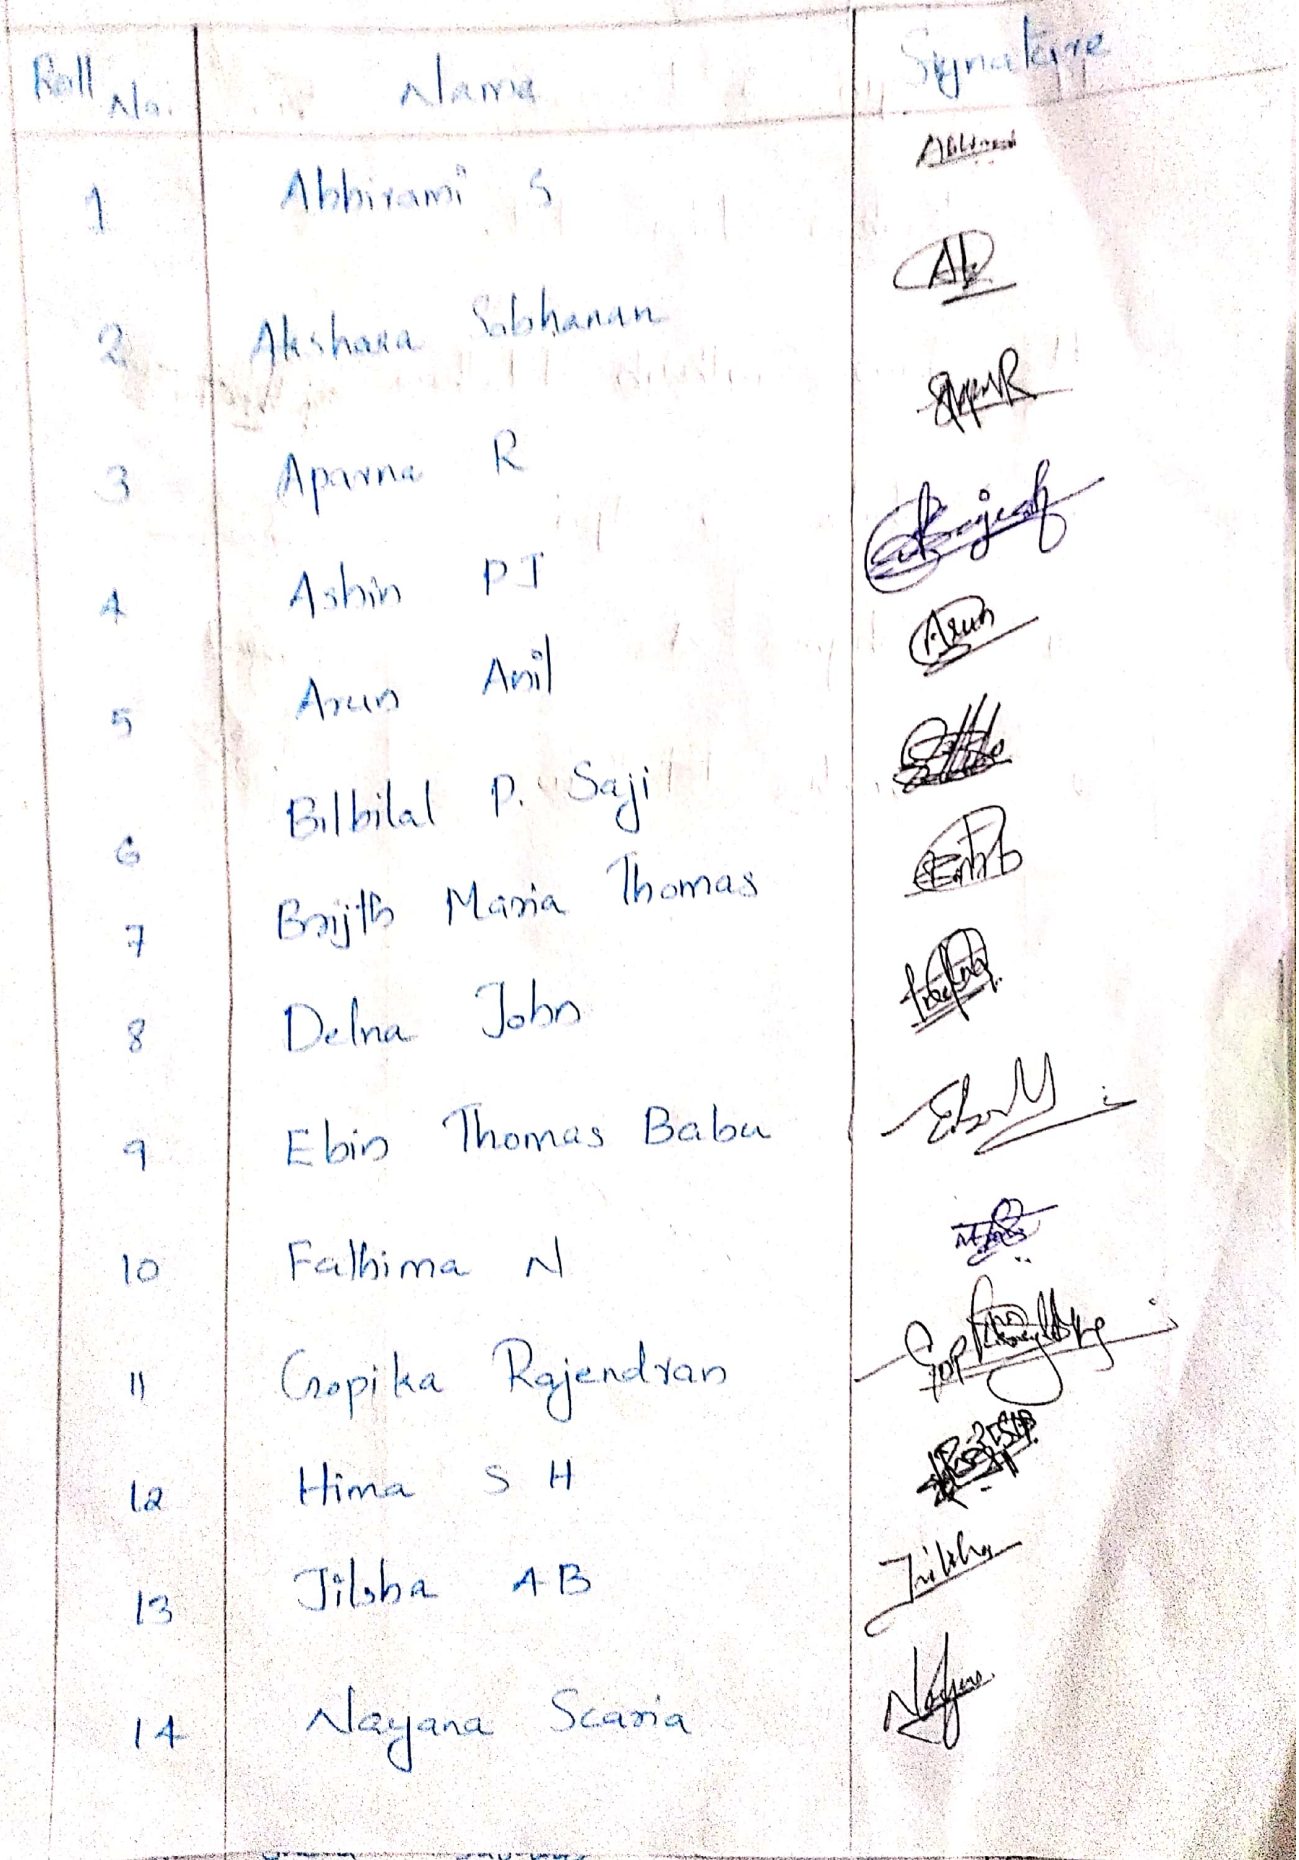 Roll No. Name Signature
1 Abhirami S
2 Akshara Sobhanan
3 Aparna R
4 Ashin P J
5 Arun Anil Arun
6 Bilbilal P. Saji
7 Brijth Maria Thomas
8 Delna John
9 Ebin Thomas Babu
10 Fathima N
11 Gopika Rajendran
12 Hima S H
13 Jilsha A B Jilsha
14 Nayana Scaria Nayana